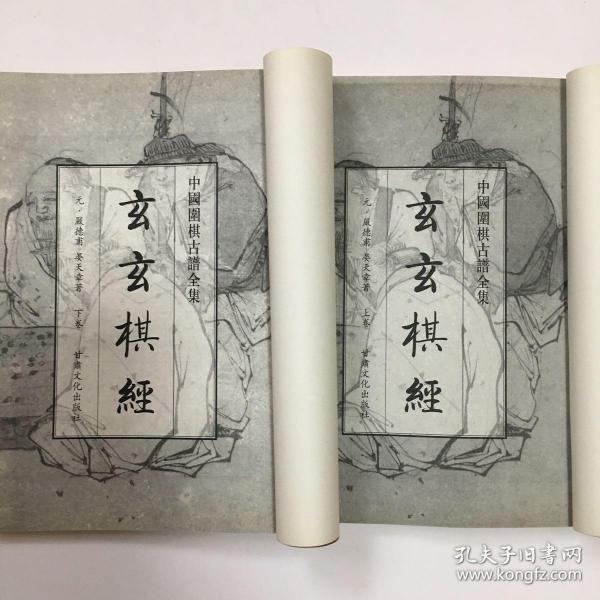 中國圍棋古譜全集
玄玄棋經
元·嚴德甫 晏天章著 下卷 甘肅文化出版社
中國圍棋古譜全集
玄玄棋經
元·嚴德甫 晏天章著 上卷 甘肅文化出版社
孔夫子旧书网
www.kongfz.com